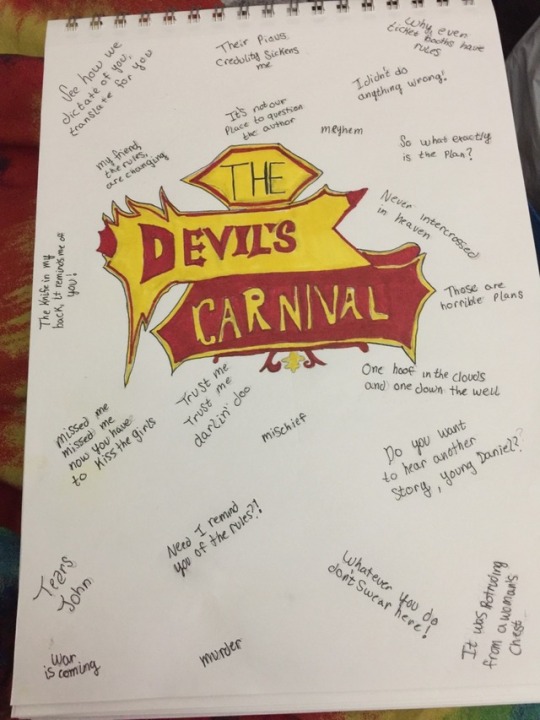 See how we
dictate of you,
translate for you
Their Pious
Credulity Sickens
me
Why even
ticket booths have
rules
I didn't do
anything wrong!
It's not our
Place to question
the author
meyhem
So what exactly
is the Plan?
my friend,
the rules,
are changing
THE
DEVIL'S
CARNIVAL
Never intercrossed
in heaven
The knife in my
back, it reminds me of
you!
Those are
horrible plans
One hoof in the clouds
and one down the well
Trust me
Trust me
darlin' doo
missed me
missed me
now you have
to kiss the girls
mischief
Do you want
to hear another
Story, young Daniel??
Need I remind
you of the rules?!
Tears
John
Whatever you do
don't swear here!
It was Potruding
from a woman's
Chest
War
is coming
murder